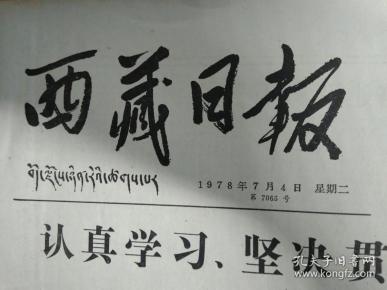 西藏日报
1978年7月4日 星期二
第7065号
认真学习、坚决贯
孔夫子旧书网
kongfz.com